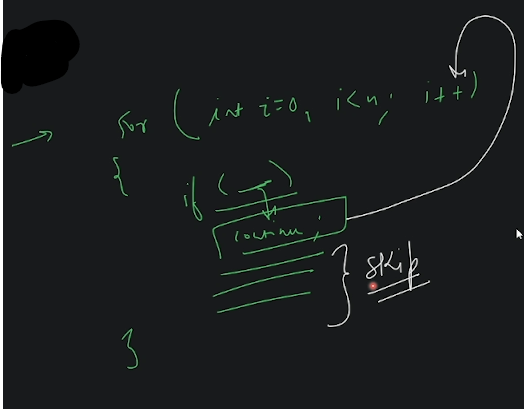 for ( int i=0, i<n; i++)
{
if ( — )
continue ;
skip
}